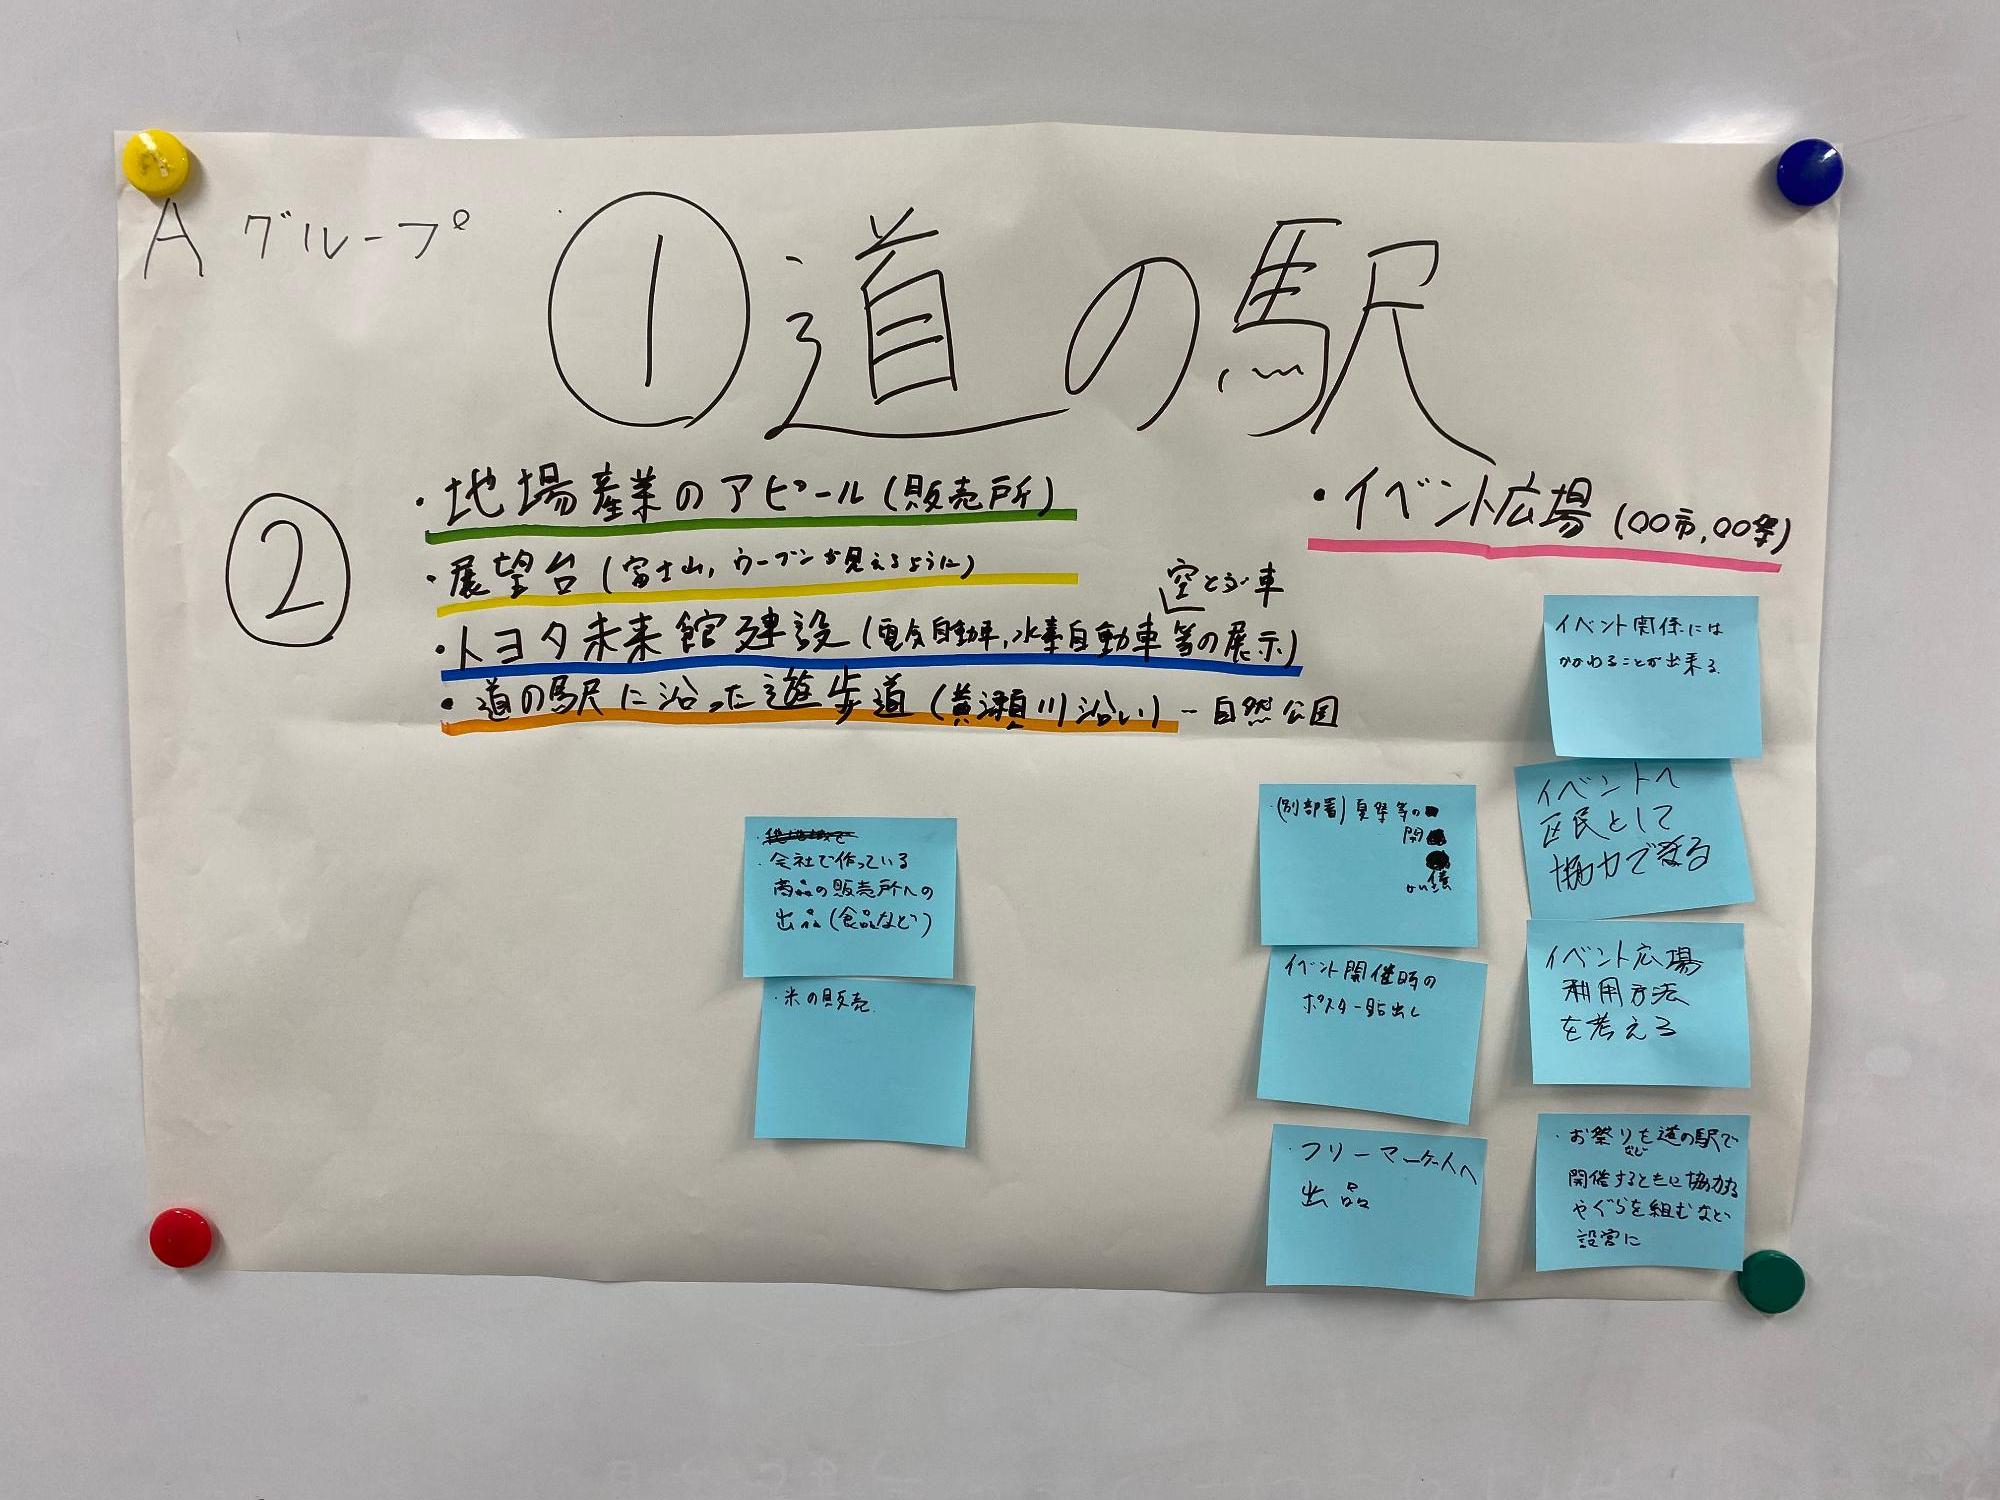 Aグループ
①道の駅
②
・地場産業のアピール(販売所)
・展望台(富士山,ウーブンが見えるように)
空とぶ車
・トヨタ未来館建設(電気自動車,水素自動車等の展示)
・道の駅に沿った遊歩道(黄瀬川沿い)-自然公園
・イベント広場(〇〇市,〇〇祭)
・会社で作っている
商品の販売所への
出品(食品など)
・米の販売
・(別部署)夏祭等の
開
催
イベント開催時の
ポスター貼出し
・フリーマーケットへ
出品
イベント関係には
かかわることが出来る
イベントへ
区民として
協力できる
イベント広場
利用方法
を考える
・お祭りを道の駅で
など
開催するともに協力する
やぐらを組むなど
設営に